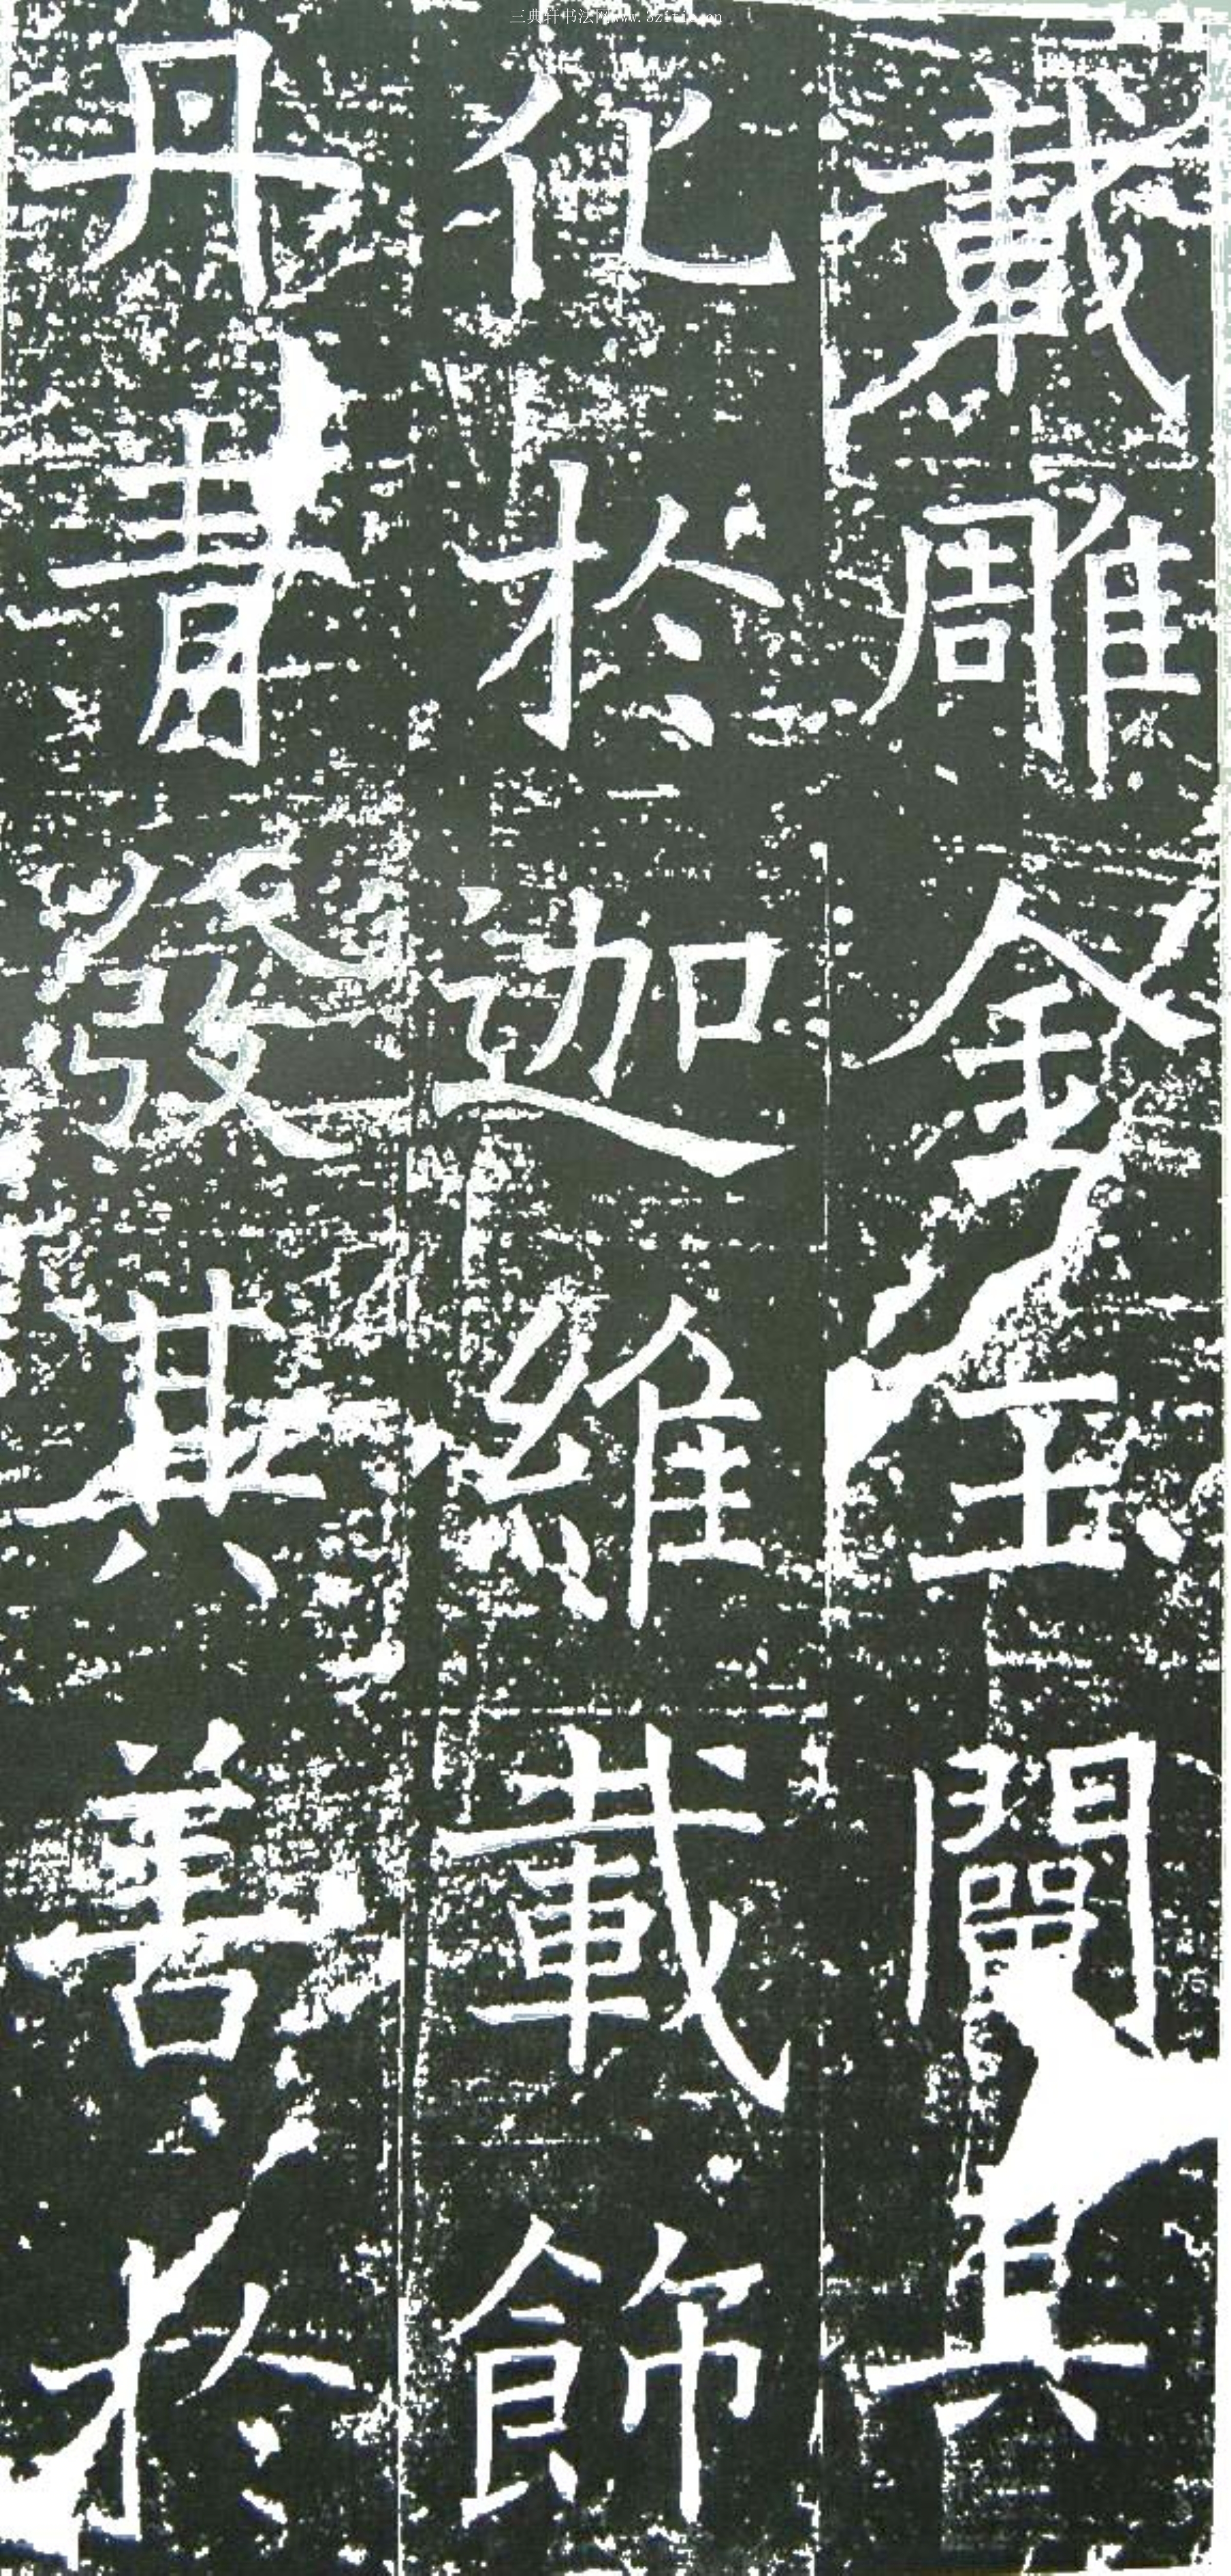 三典轩书法网www.
載雕金玉闡其
化於迦維載飾
丹青發其善於